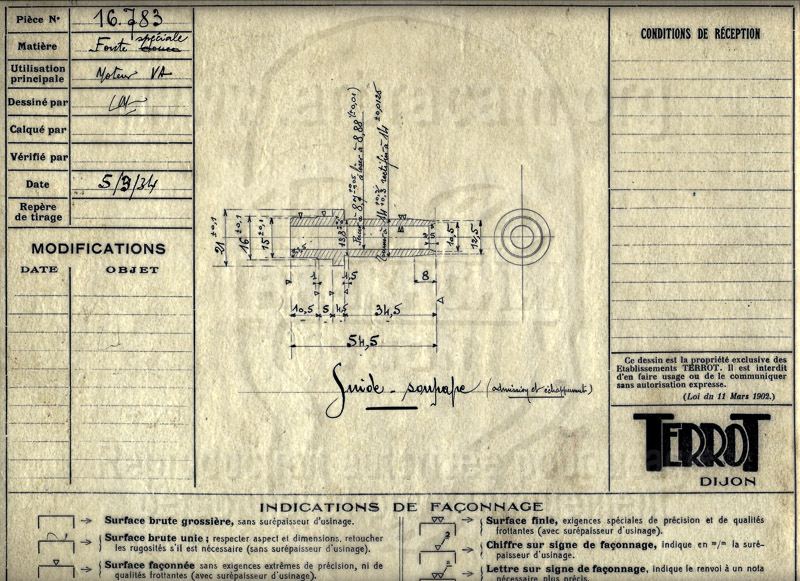 Pièce No 16.783
Matière Fonte spéciale
Utilisation principale Moteur VA
Dessiné par
Calqué par
Vérifié par
Date 5/3/34
Repère de tirage
MODIFICATIONS
DATE OBJET
21 ±0,1
16 ±0,1
15 ±0,1
13,8
alésé à 8,88 (±0,01)
rectifié à 14 ±0,0125
10,5
12,5
1
1,5
8
10,5 5 4,5 34,5
54,5
Guide - soupape (admission et échappement)
CONDITIONS DE RÉCEPTION
Ce dessin est la propriété exclusive des
Etablissements TERROT. Il est interdit
d'en faire usage ou de le communiquer
sans autorisation expresse.
(Loi du 11 Mars 1902.)
TERROT
DIJON
INDICATIONS DE FAÇONNAGE
Surface brute grossière, sans surépaisseur d'usinage.
Surface brute unie ; respecter aspect et dimensions, retoucher
les rugosités s'il est nécessaire (sans surépaisseur d'usinage).
Surface façonnée sans exigences extrêmes de précision, ni de
qualités frottantes (avec surépaisseur d'usinage).
Surface finie, exigences spéciales de précision et de qualités
frottantes (avec surépaisseur d'usinage).
Chiffre sur signe de façonnage, indique en m/m la suré-
paisseur d'usinage.
Lettre sur signe de façonnage, indique le renvoi à un nota
nécessaire plus précis.